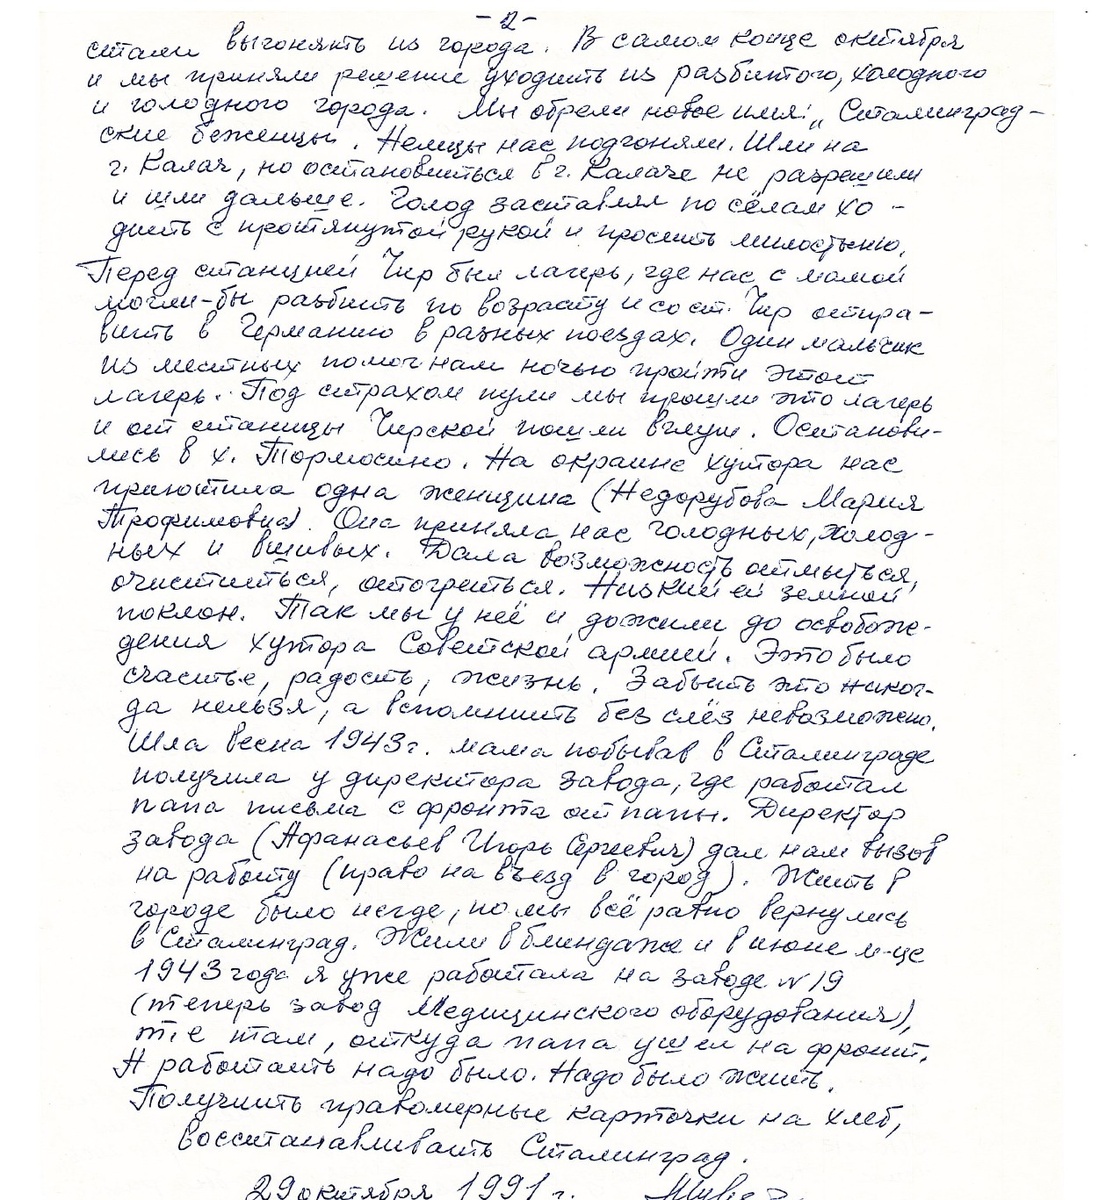 -2-
стали выгонять из города. В самом конце октября
и мы приняли решение уходить из разбитого, холодного
и голодного города. Мы обрели новое имя: „Сталинград-
ские беженцы. Немцы нас подгоняли. Шли на
г. Калач, но остановиться в г. Калаче не разрешили
и шли дальше. Голод заставлял по сёлам хо-
дить с протянутой рукой и просить милостыню.
Перед станцией Чир был лагерь, где нас с мамой
могли-бы разбить по возрасту и со ст. Чир отпра-
вить в Германию в разных поездах. Один мальчик
из местных помог нам ночью пройти этот
лагерь. Под страхом пули мы прошли это лагерь
и от станицы Чирской пошли вглубь. Останови-
лись в х. Тормосино. На окраине хутора нас
приютила одна женщина (Недорубова Мария
Трофимовна). Она приняла нас голодных, холод-
ных и вшивых. Дала возможность отмыться,
очиститься, отогреться. Низкий ей земной
поклон. Так мы у неё и дожили до освобож-
дения хутора Советской армией. Это было
счастье, радость, жизнь. Забыть это никог-
да нельзя, а вспомнить без слёз невозможно.
Шла весна 1943 г. мама побывав в Сталинграде
получила у директора завода, где работал
папа письма с фронта от папы. Директор
завода (Афанасьев Игорь Сергеевич) дал нам вызов
на работу (право на въезд в город). Жить в
городе было негде, но мы всё равно вернулись
в Сталинград. Жили в блиндаже и в июне м-це
1943 года я уже работала на заводе №19
(теперь завод Медицинского оборудования),
т.е там, откуда папа ушел на фронт.
А работать надо было. Надо было жить.
Получить правомерные карточки на хлеб,
восстанавливать Сталинград.
29 октября 1991 г.